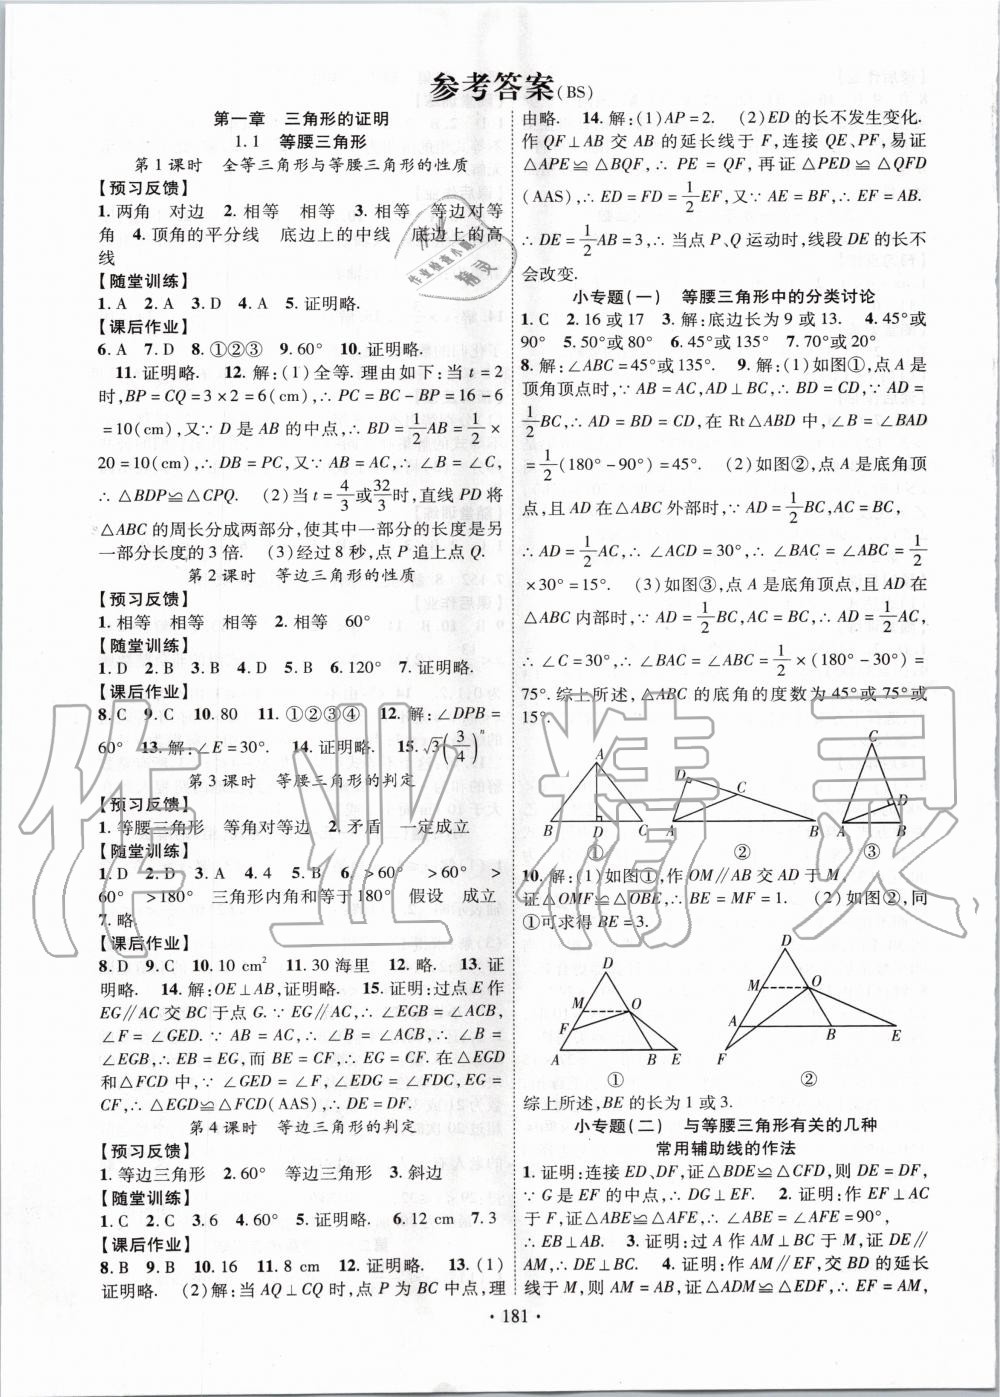 参考答案(BS)
第一章 三角形的证明
1.1 等腰三角形
第1课时 全等三角形与等腰三角形的性质
【预习反馈】
1.两角 对边 2.相等 相等 3.相等 等边对等
角 4.顶角的平分线 底边上的中线 底边上的高
线
【随堂训练】
1.A 2.A 3.D 4.A 5.证明略.
【课后作业】
6.A 7.D 8.①②③ 9.60° 10.证明略.
11.证明略. 12.解:(1)全等.理由如下:当t=2
时,BP=CQ=3×2=6(cm),∴PC=BC-BP=16-6
=10(cm),又∵D是AB的中点,∴BD=1/2AB=1/2×
20=10(cm),∴DB=PC,又∵AB=AC,∴∠B=∠C,
∴△BDP≌△CPQ. (2)当t=4/3或32/3时,直线PD将
△ABC的周长分成两部分,使其中一部分的长度是另
一部分长度的3倍. (3)经过8秒,点P追上点Q.
第2课时 等边三角形的性质
【预习反馈】
1.相等 相等 相等 2.相等 60°
【随堂训练】
1.D 2.B 3.B 4.D 5.B 6.120° 7.证明略.
【课后作业】
8.C 9.C 10.80 11.①②③④ 12.解:∠DPB=
60° 13.解:∠E=30°. 14.证明略. 15.√3(3/4)^n
第3课时 等腰三角形的判定
【预习反馈】
1.等腰三角形 等角对等边 2.矛盾 一定成立
【随堂训练】
1.D 2.D 3.A 4.4 5.8 6.>60° >60° >
60° >180° 三角形内角和等于180° 假设 成立
7.略.
【课后作业】
8.D 9.C 10.10 cm² 11.30海里 12.略. 13.证
明略. 14.解:OE⊥AB,证明略. 15.证明:过点E作
EG∥AC交BC于点G.∵EG∥AC,∴∠EGB=∠ACB,
∠F=∠GED.∵AB=AC,∴∠B=∠ACB,∴∠B=
∠EGB,∴EB=EG,而BE=CF,∴EG=CF.在△EGD
和△FCD中,∵∠GED=∠F,∠EDG=∠FDC,EG=
CF,∴△EGD≌△FCD(AAS),∴DE=DF.
第4课时 等边三角形的判定
【预习反馈】
1.等边三角形 2.60° 等边三角形 3.斜边
【随堂训练】
1.C 2.C 3.6 4.60° 5.证明略. 6.12 cm 7.3
【课后作业】
8.B 9.B 10.16 11.8 cm 12.证明略. 13.(1)
证明略. (2)解:当AQ⊥CQ时,点P为BC中点,理
由略. 14.解:(1)AP=2. (2)ED的长不发生变化.
作QF⊥AB交AB的延长线于F,连接QE,PF,易证
△APE≌△BQF,∴PE=QF,再证△PED≌△QFD
(AAS),∴ED=FD=1/2EF,又∵AE=BF,∴EF=AB.
∴DE=1/2AB=3,∴当点P、Q运动时,线段DE的长不
会改变.
小专题(一) 等腰三角形中的分类讨论
1.C 2.16或17 3.解:底边长为9或13. 4.45°或
90° 5.50°或80° 6.45°或135° 7.70°或20°
8.解:∠ABC=45°或135°. 9.解:(1)如图①,点A是
顶角顶点时,∵AB=AC,AD⊥BC,∴BD=CD,∵AD=
1/2BC,∴AD=BD=CD,在Rt△ABD中,∠B=∠BAD
=1/2(180°-90°)=45°. (2)如图②,点A是底角顶
点,且AD在△ABC外部时,∵AD=1/2BC,AC=BC,
∴AD=1/2AC,∴∠ACD=30°,∴∠BAC=∠ABC=1/2
×30°=15°. (3)如图③,点A是底角顶点,且AD在
△ABC内部时,∵AD=1/2BC,AC=BC,∴AD=1/2AC,
∴∠C=30°,∴∠BAC=∠ABC=1/2×(180°-30°)=
75°.综上所述,△ABC的底角的度数为45°或75°或
15°.
A B D C ①
D C A B ②
C D A B ③
10.解:(1)如图①,作OM∥AB交AD于M,
证△OMF≌△OBE,∴BE=MF=1. (2)如图②,同
①可求得BE=3.
D M O F A B E ①
D M O A B E F ②
综上所述,BE的长为1或3.
小专题(二) 与等腰三角形有关的几种
常用辅助线的作法
1.证明:连接ED、DF,证△BDE≌△CFD,则DE=DF,
∵G是EF的中点,∴DG⊥EF. 2.证明:作EF⊥AC
于F,证△ABE≌△AFE,∴∠ABE=∠AFE=90°,
∴EB⊥AB. 3.证明:过A作AM⊥BC于M,证DE∥
AM,∴DE⊥BC. 4.证明:作EF∥AC,交BD的延长
线于M,则AM=AB,证△ADM≌△EDF,∴EF=AM,
·181·
作业检查小精灵
作业精灵